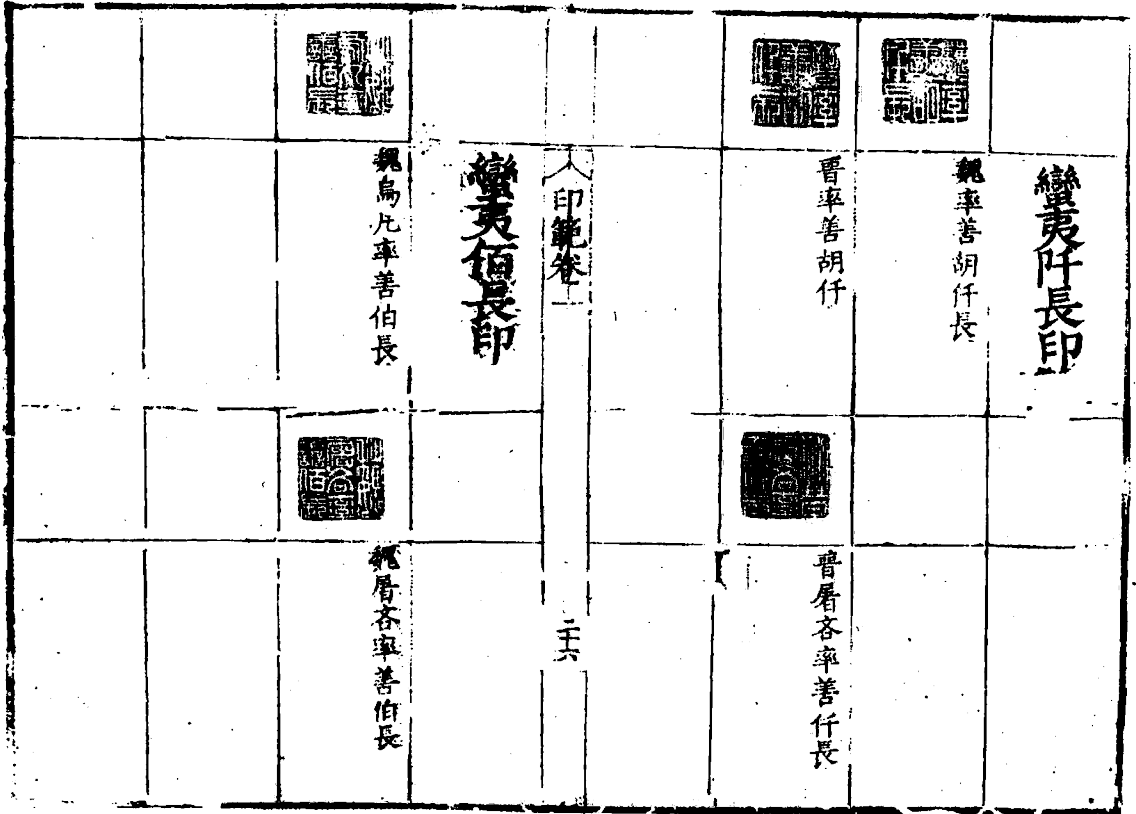 蠻夷阡長印
魏率善胡仟長
晋率善胡仟
晋屠各率善仟長
印範卷一
二十六
蠻夷佰長印
魏烏凢率善伯長
魏屠各率善伯長